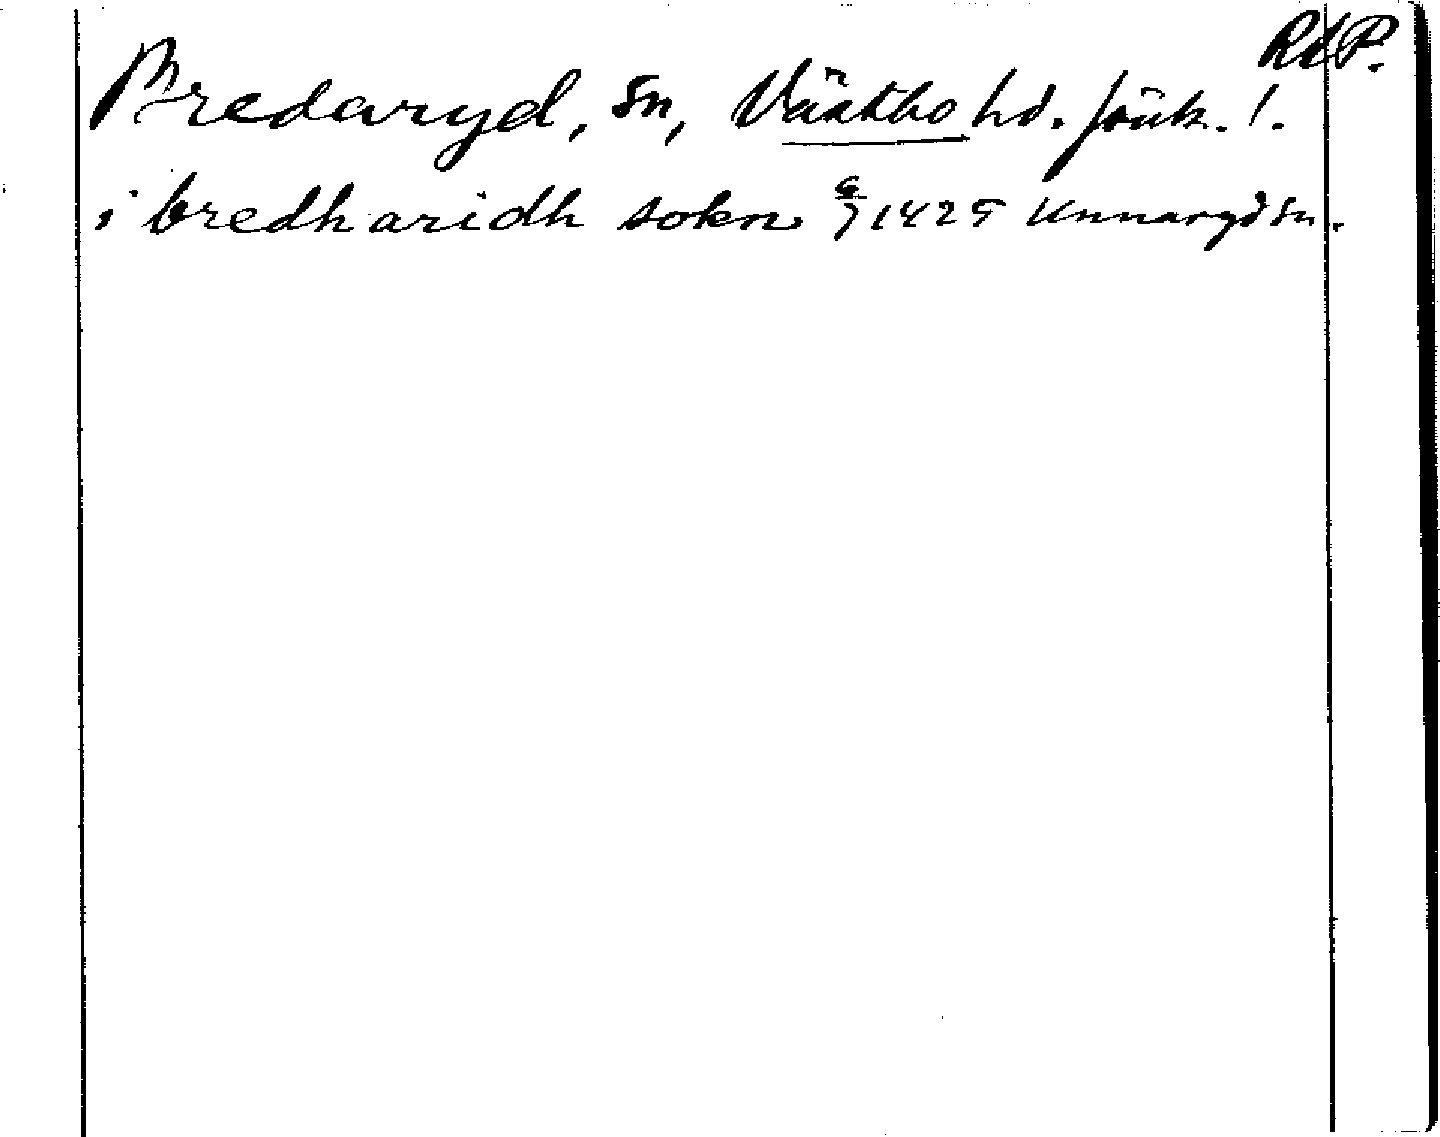 RAP.
Bredaryd, sn, Västbo hd. Jönk. l.
i bredharidh sokn 6/7 1425 Unnaryd sn.